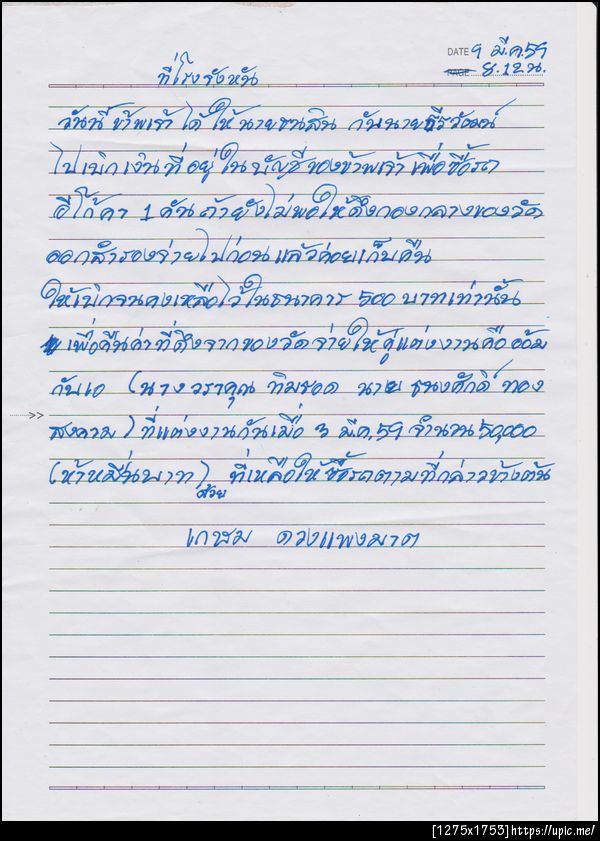 DATE 9 มี.ค.59
PAGE 8.12 น.
ที่โรงรังหัน
วันนี้ ข้าพเจ้า ได้ ให้ นายธนสิน กับนายธีรวัฒน์
ไปเบิกเงินที่อยู่ในบัญชีของข้าพเจ้า เพื่อซื้อรถ
อีโก้คา 1 คัน ถ้ายังไม่พอให้ดึงกองกลางของวัด
ออกสำรองจ่ายไปก่อน แล้วค่อยเก็บคืน
ให้เบิกจนคงเหลือไว้ในธนาคาร 500 บาทเท่านั้น
เพื่อคืนค่าที่ดึงจากของวัดจ่ายให้คู่แต่งงานคือ ออม
กับเอ (นางวราคุณ ทิมรอด นาย ธนงศักดิ์ ทอง
>> สงคราม) ที่แต่งงานกันเมื่อ 3 มี.ค.59 จำนวน 50,000
(ห้าหมื่นบาท) ด้วย ที่เหลือให้ซื้อรถตามที่กล่าวข้างต้น
เกษม ดวงแพงมาต
[1275x1753]https://upic.me/